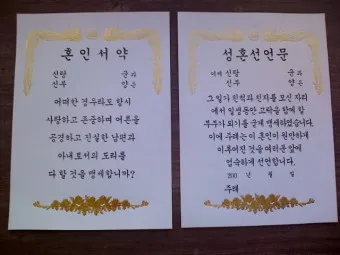 혼인서약
신랑 군과
신부 양은
어떠한 경우라도 항시
사랑하고 존중하며 어른을
공경하고 진실한 남편과
아내로서의 도리를
다 할 것을 맹세합니까?
성혼선언문
이제 신랑 군과
신부 양은
그 일가 친척과 친지를 모신 자리
에서 일생동안 고락을 함께 할
부부가 되기를 굳게 맹세하였습니다.
이에 주례는 이 혼인이 원만하게
이루어진 것을 여러분 앞에
엄숙하게 선언합니다.
년 월 일
주례